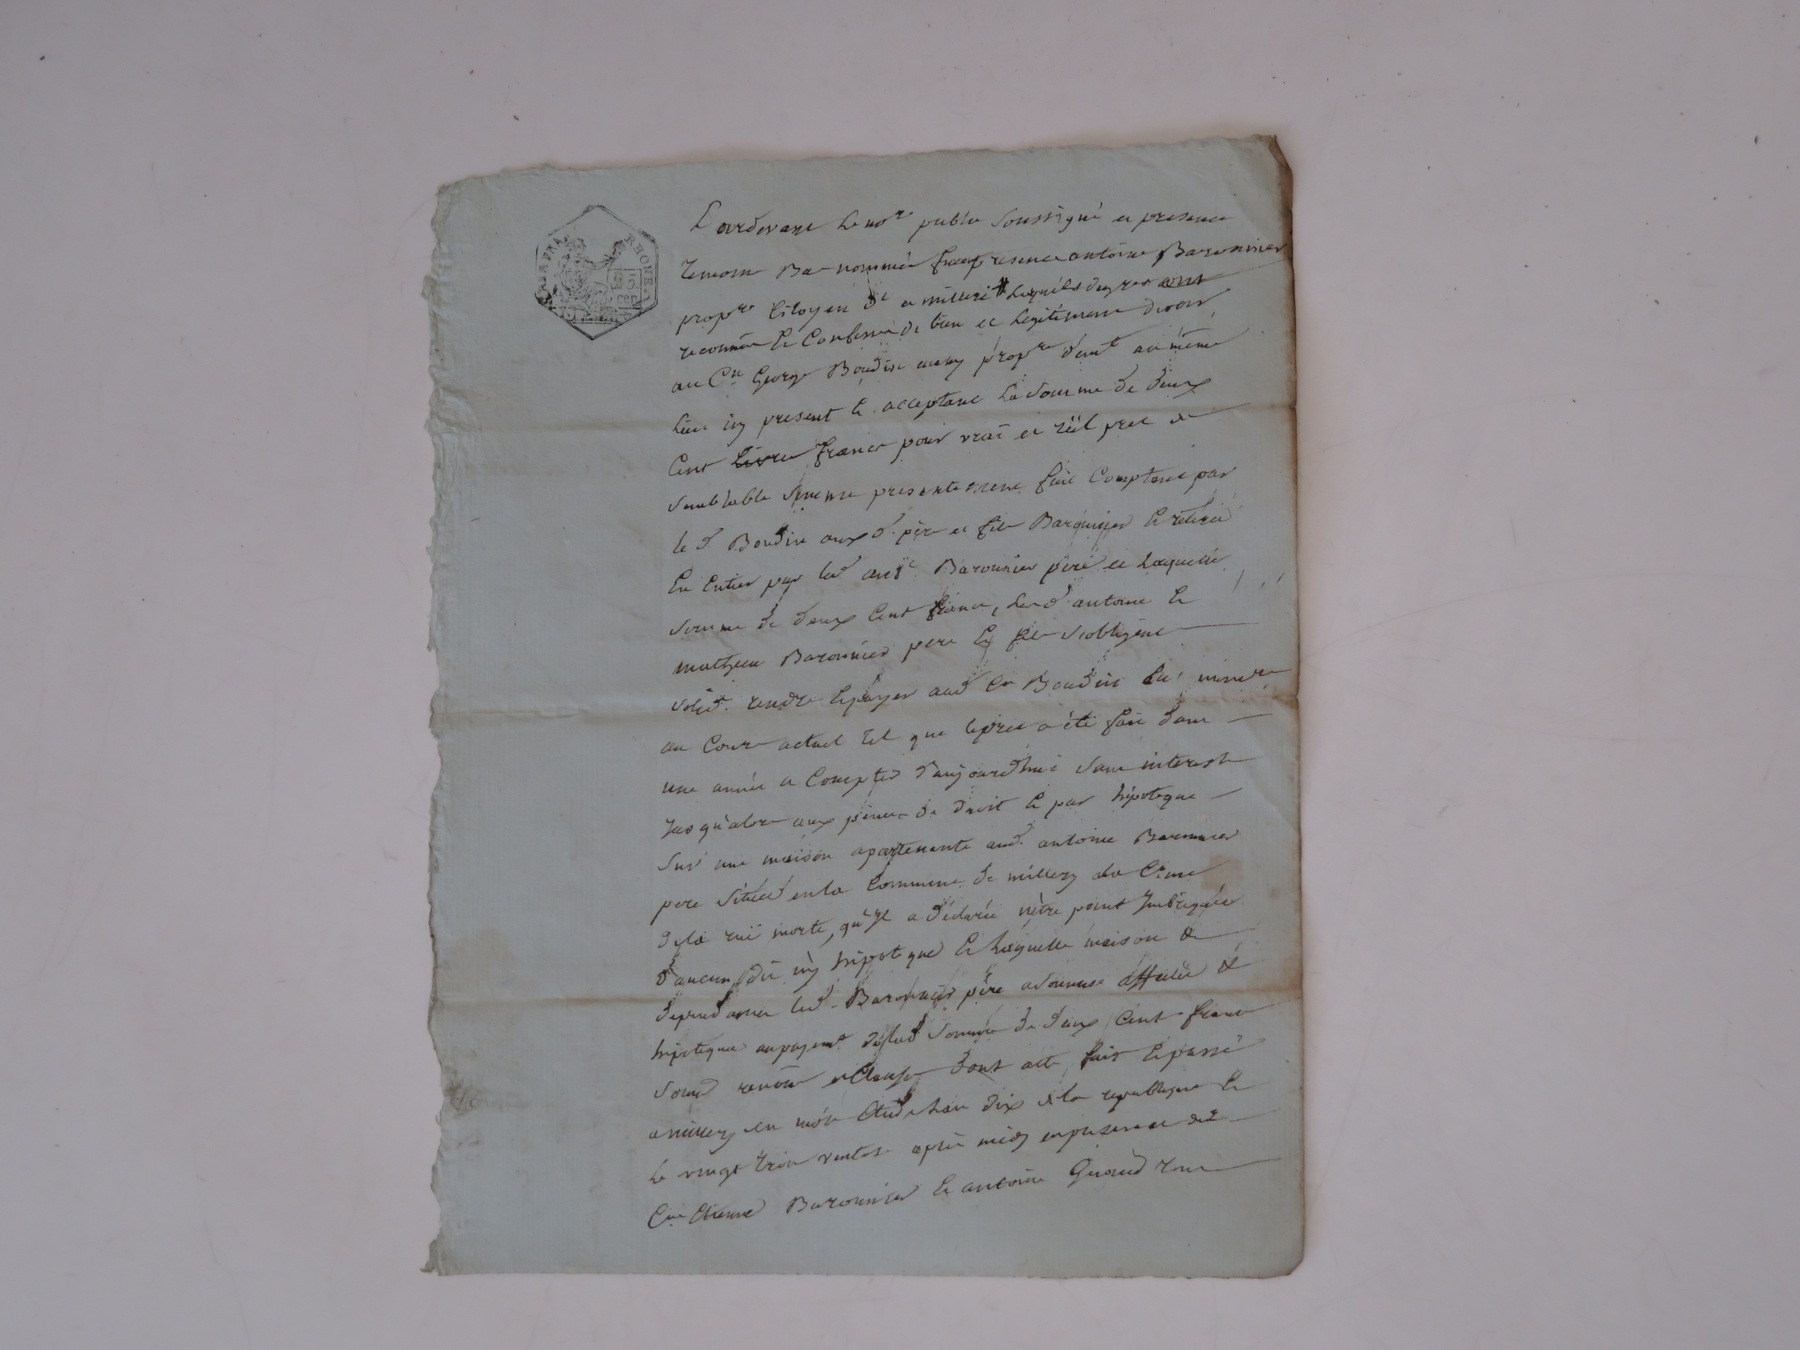 RHONE
25
cen
Pardevant Le not.re public soussigné et presence
Temoin Bas nommés furent presence antoine Baronnier
propre Citoyen a millery Lesquels degres ont
reconnu Et Confessé de bien et Legitimement devoir
au C.en George Boudin aussi prop.re dem.t au même
Lieu icy present Et acceptant La somme de deux
Cent livre francs pour vrai et réel pret de
semblable somme presentement fait Comptant par
le d. Boudin aux d. père et fils Baronnier Et retiré
En Entier par led ant.e Baronnier père et Laquelle
somme de deux Cent francs, Lesd. antoine Et
mathieu Baronnier pere Et fils s'obligent
solid. rendre Et payer aud C.en Boudin En numre
au Cours actuel tel que le pret a été fait dans
une année a Compter d'aujourdhui sans interest
Jusqu'alors aux peines de droit Et par hipoteque
sur une maison apartenante aud. antoine Baronnier
pere située en la Commune de millery a la Cime
de la ruë morte, qu'il a déclarée n'être point
d'aucun hipoteque Et Laquelle maison &
dependances led. Baronnier père a soumise affectée &
hipotequé au payem.t de lad. somme de deux Cent francs
sous clauses dont acte fait Et passé
a millery en mon Etude Lan dix de la republique Et
Le vingt trois ventose après midy en presence des
C.en Etienne Baronnier Et antoine